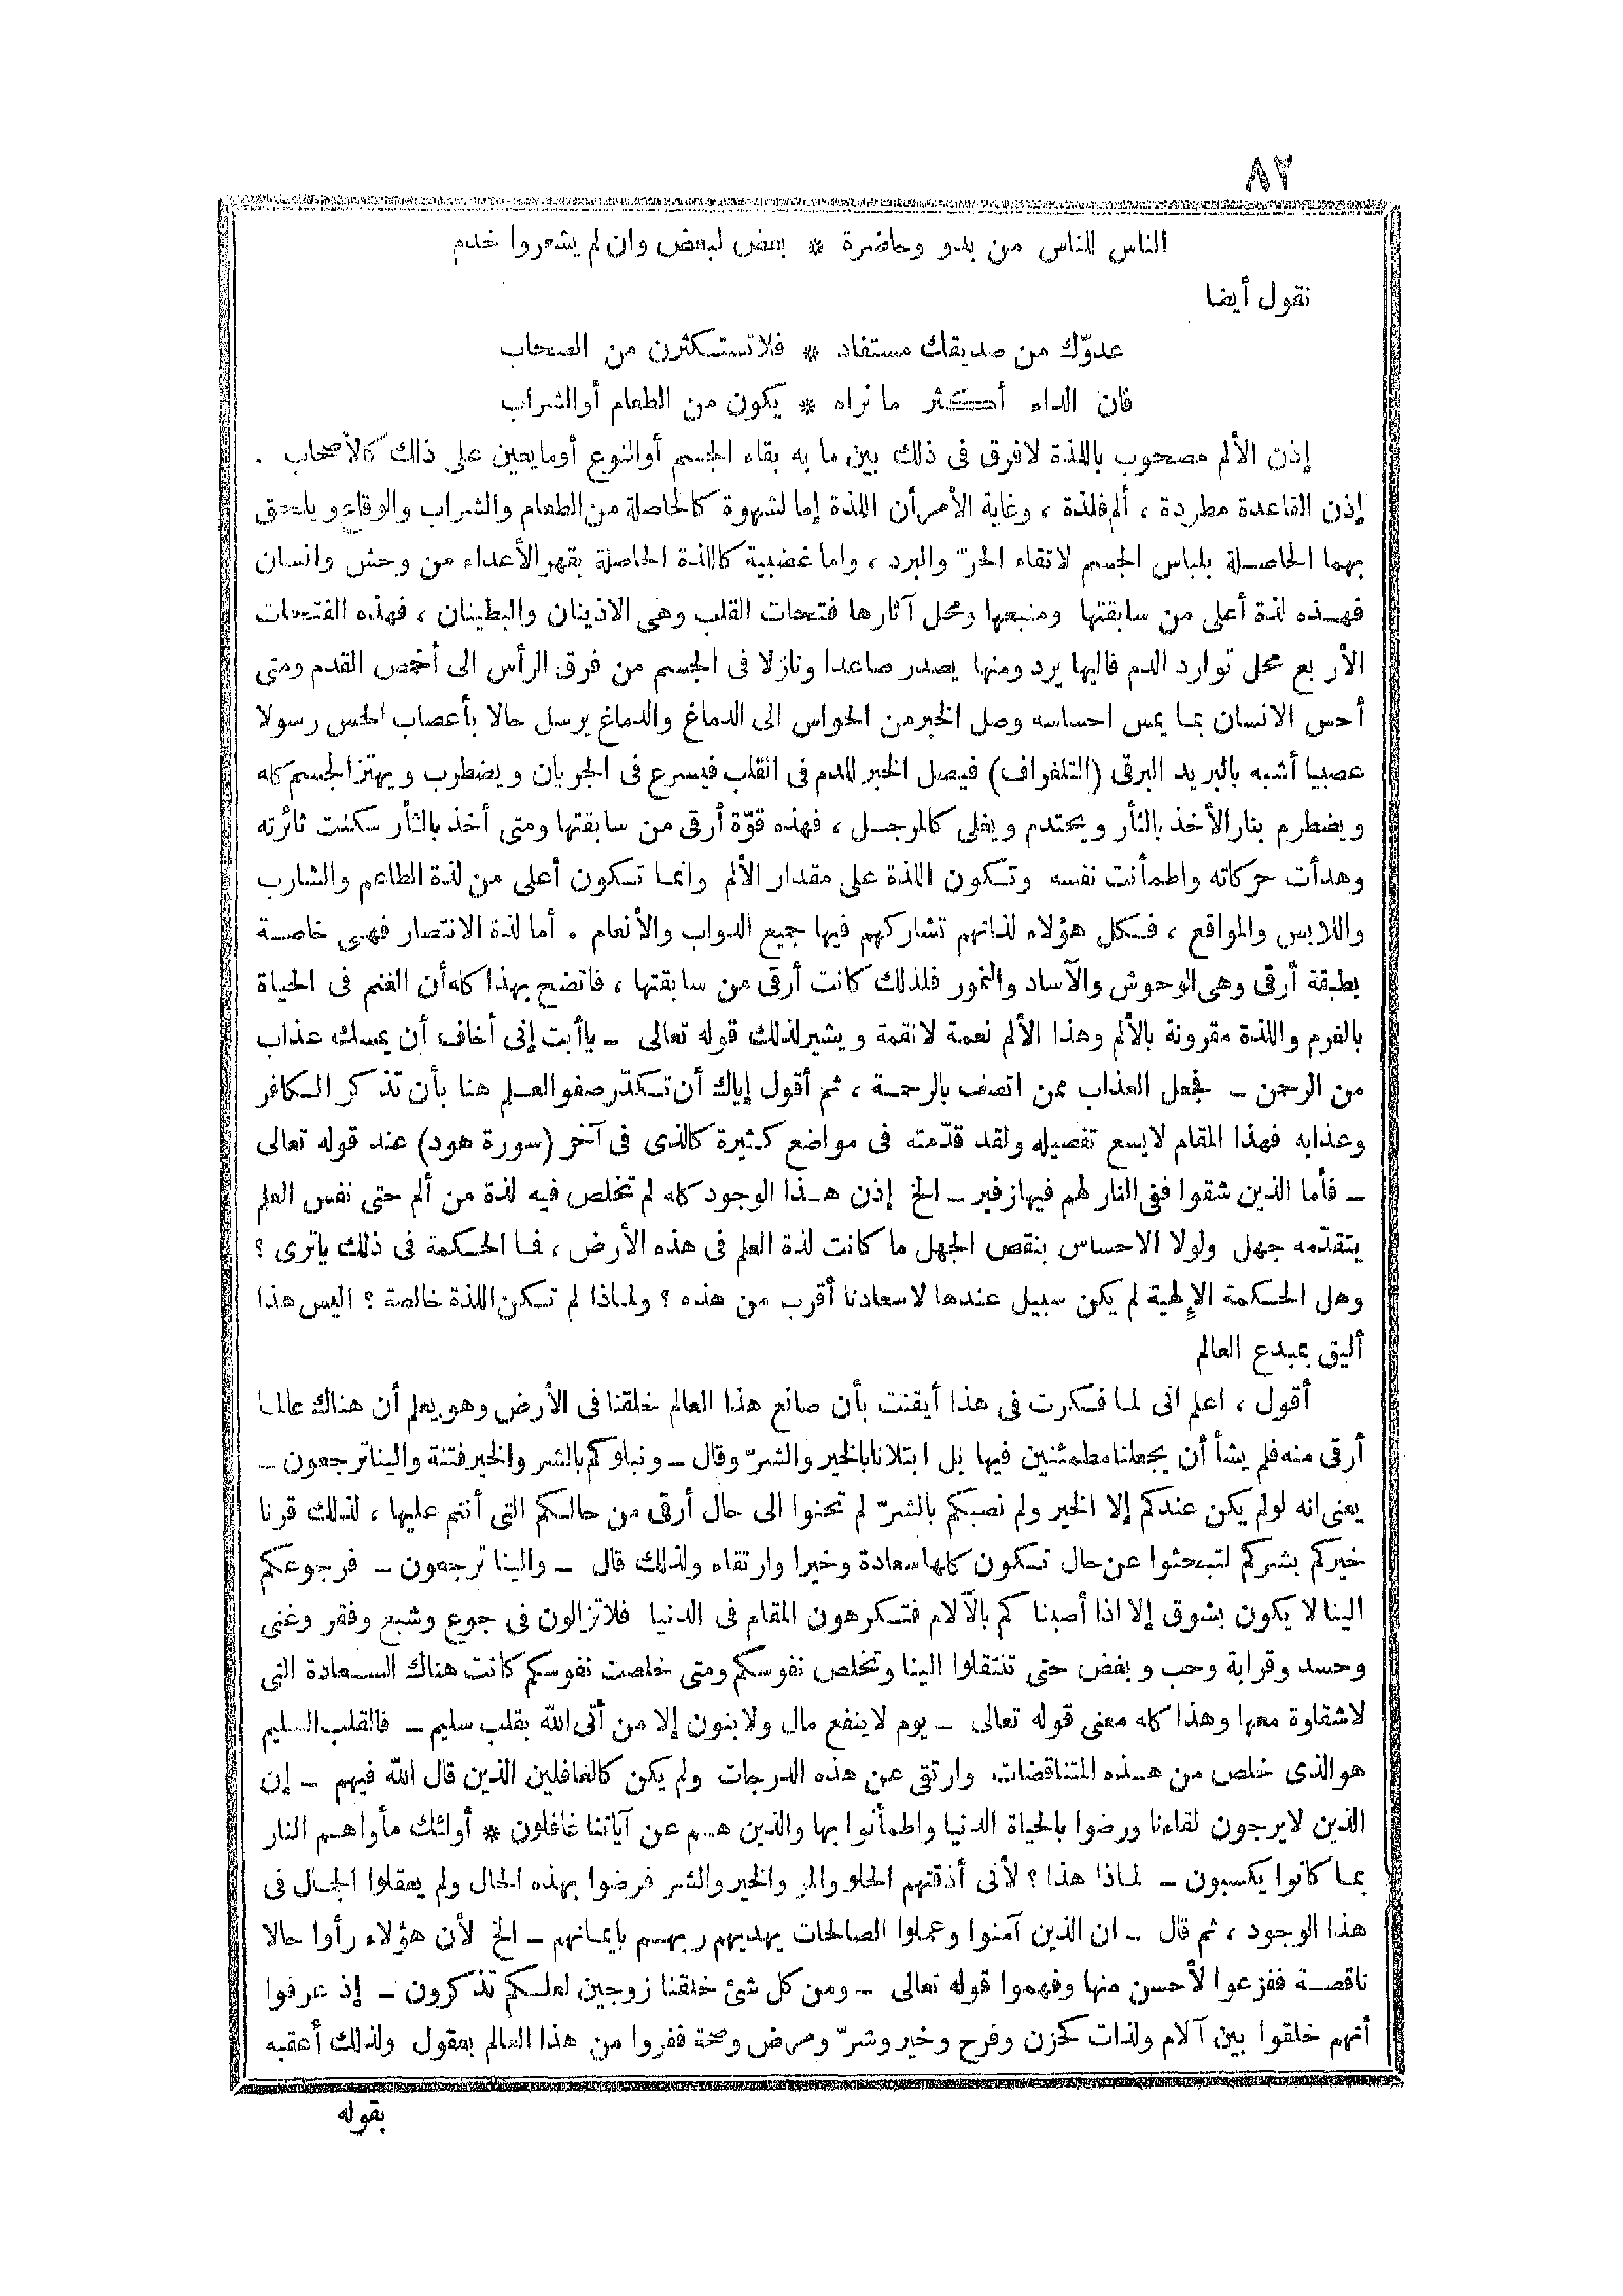 ٨٢
الناس للناس من بدو وحاضرة * بعض لبعض وان لم يشعروا خدم
نقول أيضا
عدوّك من صديقك مستفاد * فلا تستكثرن من الصحاب
فان الداء أكثر ما نراه * يكون من الطعام أو الشراب
إذن الألم مصحوب باللذة لا فرق فى ذلك بين ما به بقاء الجسم أو النوع أو ما يعين على ذلك كالأصحاب .
إذن القاعدة مطردة ، ألم فلذة ، وغاية الأمر أن اللذة إما لشهوة كالحاصلة من الطعام والشراب والوقاع ويلحق
بهما الحاصلة بلباس الجسم لاتقاء الحرّ والبرد ، واما غضبية كاللذة الحاصلة بقهر الأعداء من وحش وانسان
فهذه لذة أعلى من سابقتها ومنبعها ومحل آثارها فتحات القلب وهى الاذينان والبطينان ، فهذه الفتحات
الأربع محل توارد الدم فاليها يرد ومنها يصدر صاعدا ونازلا فى الجسم من فرق الرأس الى أخمص القدم ومتى
أحس الانسان بما يمس احساسه وصل الخبر من الحواس الى الدماغ والدماغ يرسل حالا بأعصاب الحس رسولا
عصبيا أشبه بالبريد البرقى (التلغراف) فيصل الخبر للدم فى القلب فيسرع فى الجريان ويضطرب ويهتز الجسم كله
ويضطرم بنار الأخذ بالثأر ويحتدم ويغلى كالمرجل ، فهذه قوّة أرقى من سابقتها ومتى أخذ بالثأر سكنت ثائرته
وهدأت حركاته واطمأنت نفسه وتكون اللذة على مقدار الألم وانما تكون أعلى من لذة الطاعم والشارب
واللابس والمواقع ، فكل هؤلاء لذاتهم تشاركهم فيها جميع الدواب والأنعام . أما لذة الانتصار فهى خاصة
بطبقة أرقى وهى الوحوش والآساد والنمور فلذلك كانت أرقى من سابقتها ، فاتضح بهذا كله أن الغنم فى الحياة
بالغرم واللذة مقرونة بالألم وهذا الألم نعمة لا نقمة ويشير لذلك قوله تعالى - يا أبت إنى أخاف أن يمسك عذاب
من الرحمن - فجعل العذاب ممن اتصف بالرحمة ، ثم أقول إياك أن تكدّر صفو العلم هنا بأن تذكر الكافر
وعذابه فهذا المقام لا يسع تفصيله ولقد قدّمته فى مواضع كثيرة كالذى فى آخر (سورة هود) عند قوله تعالى
- فأما الذين شقوا ففى النار لهم فيها زفير - الخ إذن هذا الوجود كله لم تخلص فيه لذة من ألم حتى نفس العلم
يتقدّمه جهل ولولا الاحساس بنقص الجهل ما كانت لذة العلم فى هذه الأرض ، فما الحكمة فى ذلك ياترى ؟
وهل الحكمة الإلهية لم يكن سبيل عندها لاسعادنا أقرب من هذه ؟ ولماذا لم تكن اللذة خالصة ؟ اليس هذا
أليق بمبدع العالم
أقول ، اعلم انى لما فكرت فى هذا أيقنت بأن صانع هذا العالم خلقنا فى الأرض وهو يعلم أن هناك عالما
أرقى منه فلم يشأ أن يجعلنا مطمئنين فيها بل ابتلانا بالخير والشرّ وقال - ونبلوكم بالشر والخير فتنة والينا ترجعون -
يعنى انه لولم يكن عندكم إلا الخير ولم نصبكم بالشرّ لم تحنوا الى حال أرقى من حالكم التى أنتم عليها ، لذلك قرنا
خيركم بشركم لتبحثوا عن حال تكون كلها سعادة وخيرا وارتقاء ولذلك قال - والينا ترجعون - فرجوعكم
الينا لا يكون بشوق إلا اذا أصبناكم بالآلام فتكرهون المقام فى الدنيا فلا تزالون فى جوع وشبع وفقر وغنى
وحسد وقرابة وحب وبغض حتى تنتقلوا الينا وتخلص نفوسكم ومتى خلصت نفوسكم كانت هناك السعادة التى
لا شقاوة معها وهذا كله معنى قوله تعالى - يوم لا ينفع مال ولا بنون إلا من أتى الله بقلب سليم - فالقلب السليم
هو الذى خلص من هذه المتناقضات وارتقى عن هذه الدرجات ولم يكن كالغافلين الذين قال الله فيهم - إن
الذين لا يرجون لقاءنا ورضوا بالحياة الدنيا واطمأنوا بها والذين هم عن آياتنا غافلون * أولئك مأواهم النار
بما كانوا يكسبون - لماذا هذا ؟ لأنى أذقتهم الحلو والمر والخير والشر فرضوا بهذه الحال ولم يعقلوا الجمال فى
هذا الوجود ، ثم قال - ان الذين آمنوا وعملوا الصالحات يهديهم ربهم بإيمانهم - الخ لأن هؤلاء رأوا حالا
ناقصة ففزعوا لأحسن منها وفهموا قوله تعالى - ومن كل شئ خلقنا زوجين لعلكم تذكرون - إذ عرفوا
أنهم خلقوا بين آلام ولذات كحزن وفرح وخير وشرّ ومرض وصحة ففروا من هذا العالم بعقول ولذلك أعقبه
بقوله